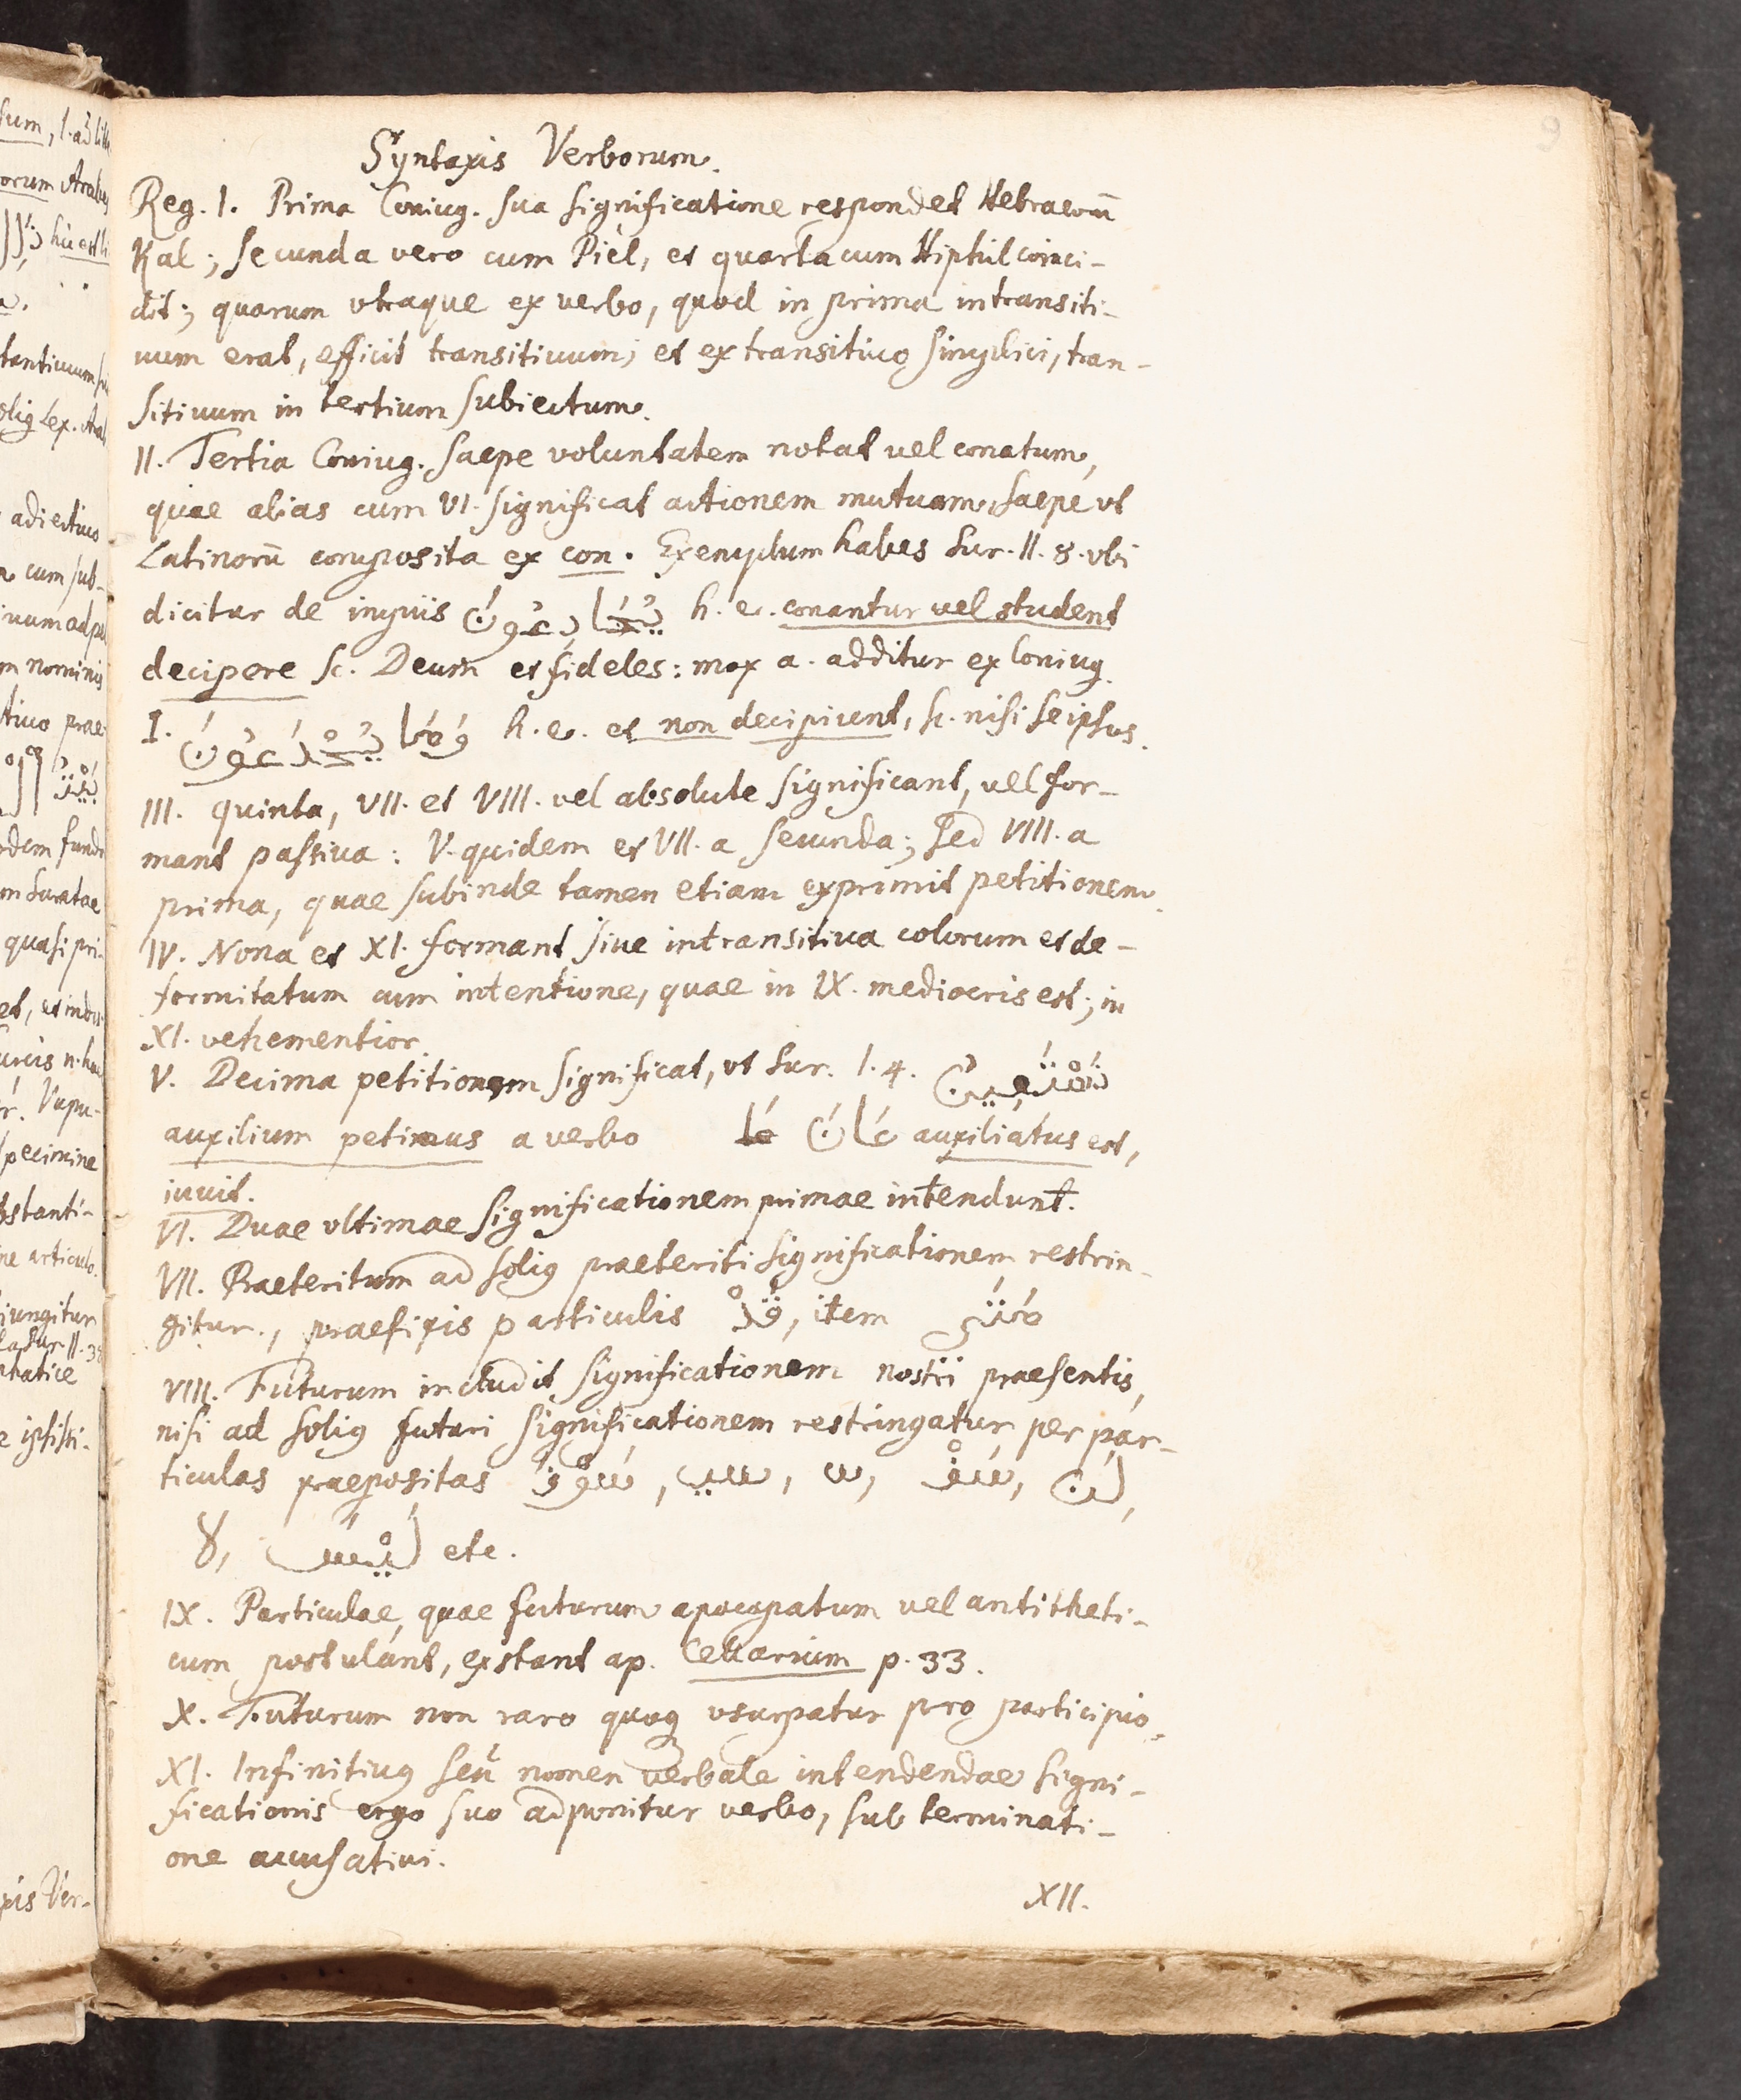 9
Syntaxis Verborum.
Reg. I. Prima Coniug. sua significatione respondet Hebraeorū
Kal; secunda vero cum Piel, et quarta cum Hiphil coinci-
dit; quarum vtraque ex verbo, quod in prima intransiti-
uum erat, efficit transitiuum; et ex transitiuo simplici, tran-
sitiuum in tertium subiectum.
II. Tertia Coniug. saepe voluntatem notat vel conatum,
quae alias cum VI. significat actionem mutuam, saepe vt
Latinorū composita ex con. Exemplum habes Sur. II. 8. vbi
dicitur de impiis يُخَادِعُونَ h. e. conantur vel student
decipere sc. Deum et fideles: mox a. additur ex Coniug.
I. وَمَا يَخْدَعُونَ h. e. et non decipiunt, sc. nisi se ipsos.
III. quinta, VII. et VIII. vel absolute significant, vel for-
mant passiua: V. quidem et VII. a secunda; sed VIII. a
prima, quae subinde tamen etiam exprimit petitionem.
IV. Nona et XI. formant siue intransitiua colorum et de-
formitatum cum intentione, quae in IX. mediocris est; in
XI. vehementior.
V. Decima petitionem significat, vt Sur. I. 4. نَسْتَعِينُ
auxilium petimus a verbo عَانَ auxiliatus est,
iuuit.
VI. Duae vltimae significationem primae intendunt.
VII. Praeteritum ad soliq praeteriti significationem restrin-
gitur, praefixis particulis قَدْ, item مَتَى
VIII. Futurum includit significationem nostri praesentis,
nisi ad soliq futuri significationem restringatur per par-
ticulas praepositas سَوْفَ, سي, س, سَفْ, لن,
لا, لَيْسَ etc.
IX. Particulae, quae futurum apocopatum vel antitheti-
cum postulant, exstant ap. Cellarium p. 33.
X. Futurum non raro quoq vsurpatur pro participio.
XI. Infinitiuq seu nomen verbale intendendae signi-
ficationis ergo suo adponitur verbo, sub terminati-
one accusatiui.
XII.